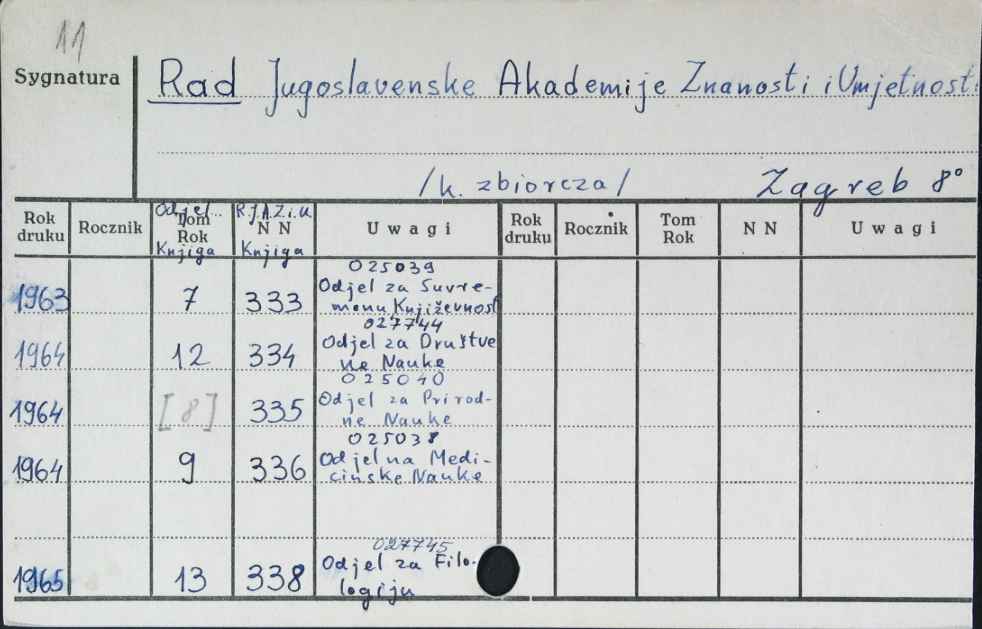 11
Sygnatura
Rad Jugoslavenske Akademije Znanosti i Umjetnosti
/k. zbiorcza/ Zagreb 8°
Rok druku Rocznik Odjel Tom Rok Knjiga R.J.A.Z.i.U N N Knjiga Uwagi Rok druku Rocznik Tom Rok N N Uwagi
025039
1963 7 333 Odjel za Suvre-
menu Književnost
027744
1964 12 334 Odjel za Društve
ne Nauke
025040
1964 [8] 335 Odjel za Prirod-
ne Nauke
025038
1964 9 336 Odjel na Medi-
cinske Nauke
027745
1965 13 338 Odjel za Filo-
logiju